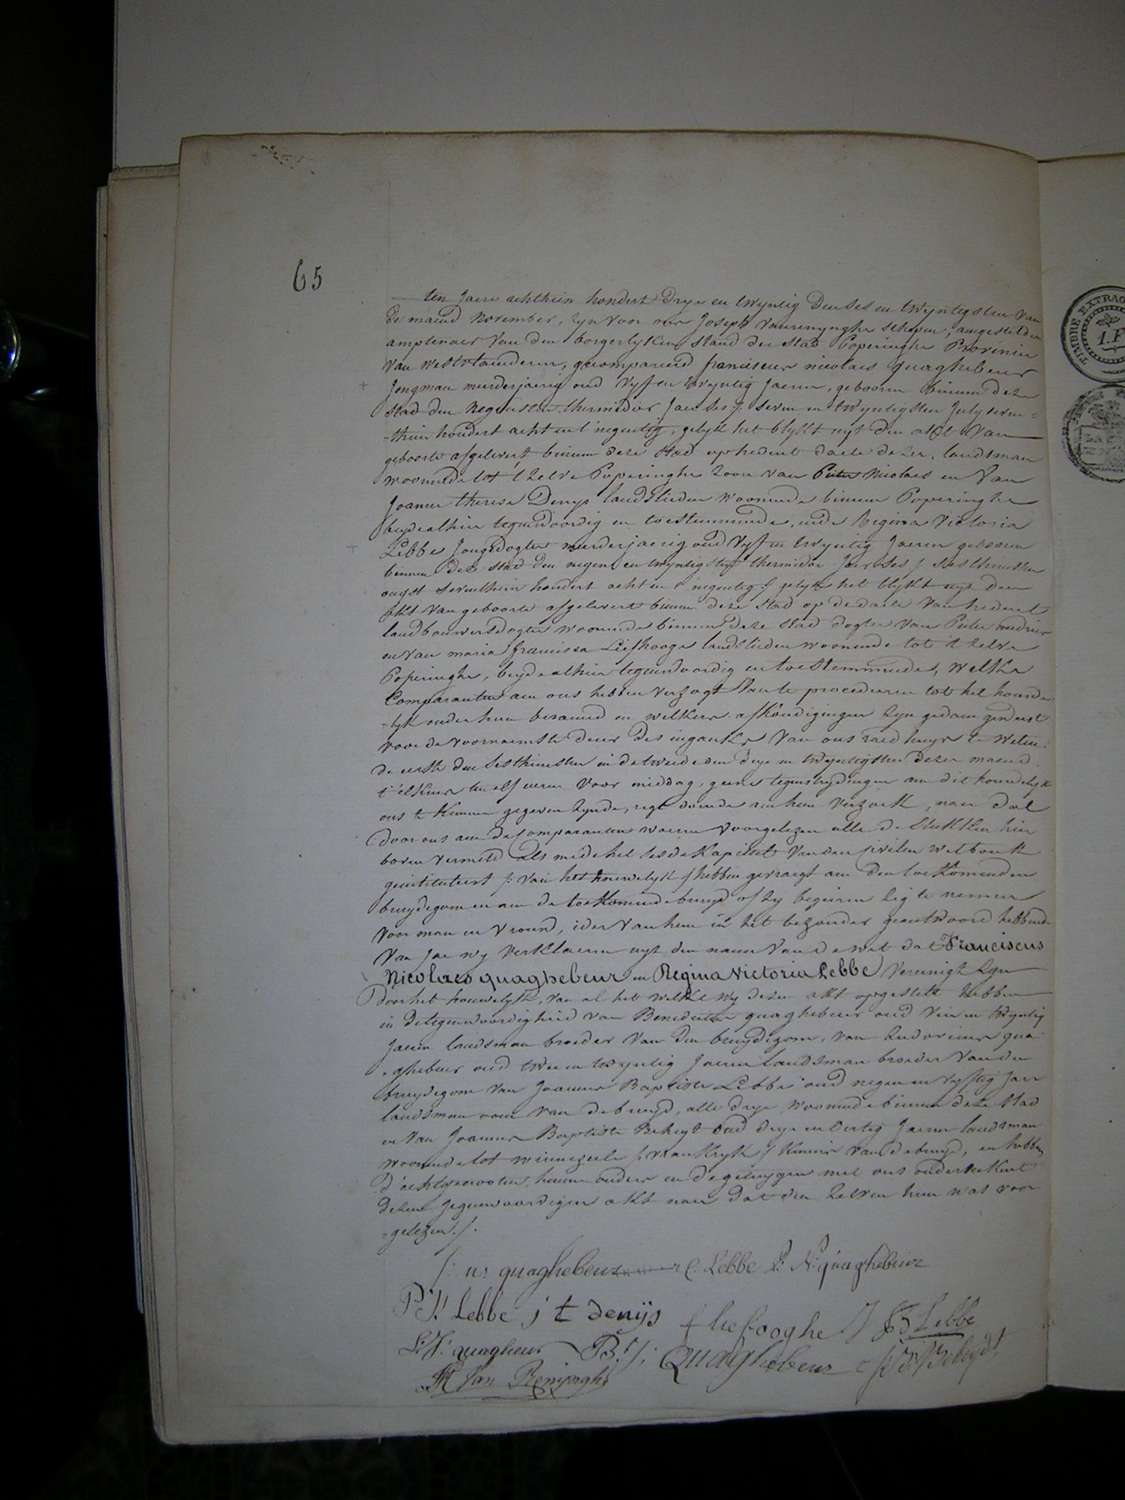 65
ten Jaere achthien hondert drye en twyntig den ses en twyntigsten van
de maend November, zyn voor ons Joseph Vanrenynghe schepen, aengestelden
amptenaer van den borgerlyken stand der stad Poperinghe Provincie
van Westvlaenderen, gecompareerd franciscus nicolaes quaghebeur
Jongman meerderjaerig oud vyf en twyntig Jaeren, geboren binnen deze
stad den negensten thermidor Jaer ses /: seven en twyntigsten July seven-
-thien hondert acht en t'negentig, gelyk het blykt uyt den akt van
geboorte afgelevert binnen deze stad op heden daete dezer, landsman
woonende tot t'zelve Poperinghe zoon van Pieter Nicolaes en van
Joanna theresa Denys landslieden woonende binnen Poperinghe
beyde alhier tegenwoordig en toestemmende, ende Regina Victoria
Lebbe Jongedogter meerderjaerig oud vyf en twyntig Jaeren geboren
binnen deze stad den negen en twyntigsten thermidor Jaer ses /: sesthiensten
ougst seventhien hondert acht en t'negentig :/ gelyk het blykt uyt den
akt van geboorte afgelevert binnen deze stad op de daete van heden
landbouwersdogter woonende binnen deze stad dogter van Pieter
en van maria francisca Liefhooge landslieden woonende tot t'zelve
Poperinghe, beyde alhier tegenwoordig en toestemmende, welke
Comparanten aen ons hebben verzogt van te procederen tot het houwe-
-lyk onder hun beraemd en welkers afkondigingen zyn gedaen geweest
voor de voornaemste deure des ingankx van ons raedhuys te weten:
de eerste den sesthiensten en de tweede den drye en twyntigsten dezer maend
t'elkens ten elf uren voor middag, geene tegenstrydingen aen dit houwelyk
ons te kennen gegeven zynde, regt doende aen hun verzoek, naer dat
door ons aen de Comparanten waeren voorgelezen alle de stukken hier
boven vermeld als mede het sesde Kapittel van den civilen wetboek
geintituleert /: van het houwelyk :/ hebben gevraegt aen den toekomenden
bruydegom en aen de toekomende bruyd of zy begeiren zig te nemen
voor man en vrouw, ider van hun in het bezonder geantwoord hebbende
van Jae wy verklaeren uyt den naem van de wet dat Franciscus
Nicolaes quaghebeur en Regina Victoria Lebbe vereenigt zyn
door het houwelyk, van al het welke wy dezen akt opgestelt hebben
in de tegenwoordigheid van Benedictus quaghebeur oud vier en twyntig
Jaeren landsman broeder van den bruydegom, van Ludovicus qua-
-ghebeur oud twee en twyntig Jaeren landsman broeder van den
bruydegom van Joannes Baptiste Lebbe oud negen en vyftig Jaer
landsman oom van de bruyd, alle drye woonende binnen deze stad
en van Joannes Baptiste Beheyt oud drye en dertig Jaeren landsman
woonende tot winnezeele /: vrankryk :/ Kennis van de bruyd, en hebben
d'echtgenooten, hunne ouders en de getuygen met ons onderteekent
dezen Jegenwoordigen akt naer dat den zelven hun was voor
-gelezen ./.
quaghebeur Lebbe P: N: quaghebeur
P: J: Lebbe j t denijs f liefooghe J B Lebbe
L: J: quaghebeur B: J: Quaghebeur J B Beheydt
JR Van Renijnghe
TIMBRE EXTRAO
1.F